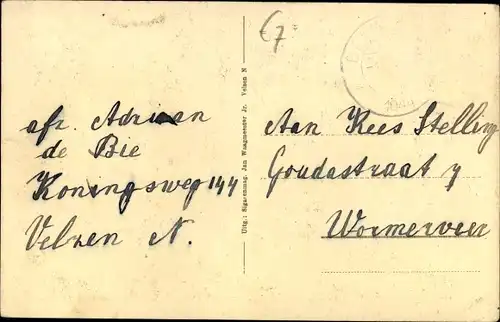 €7
afz. Adriaan
de Bie
Koningsweg 144
Velzen N.
Uitg.: Sigarenmag. Jan Waagmeester Jr. Velsen N
Aan Kees Stelling
Goudastraat 7
Wormerveer